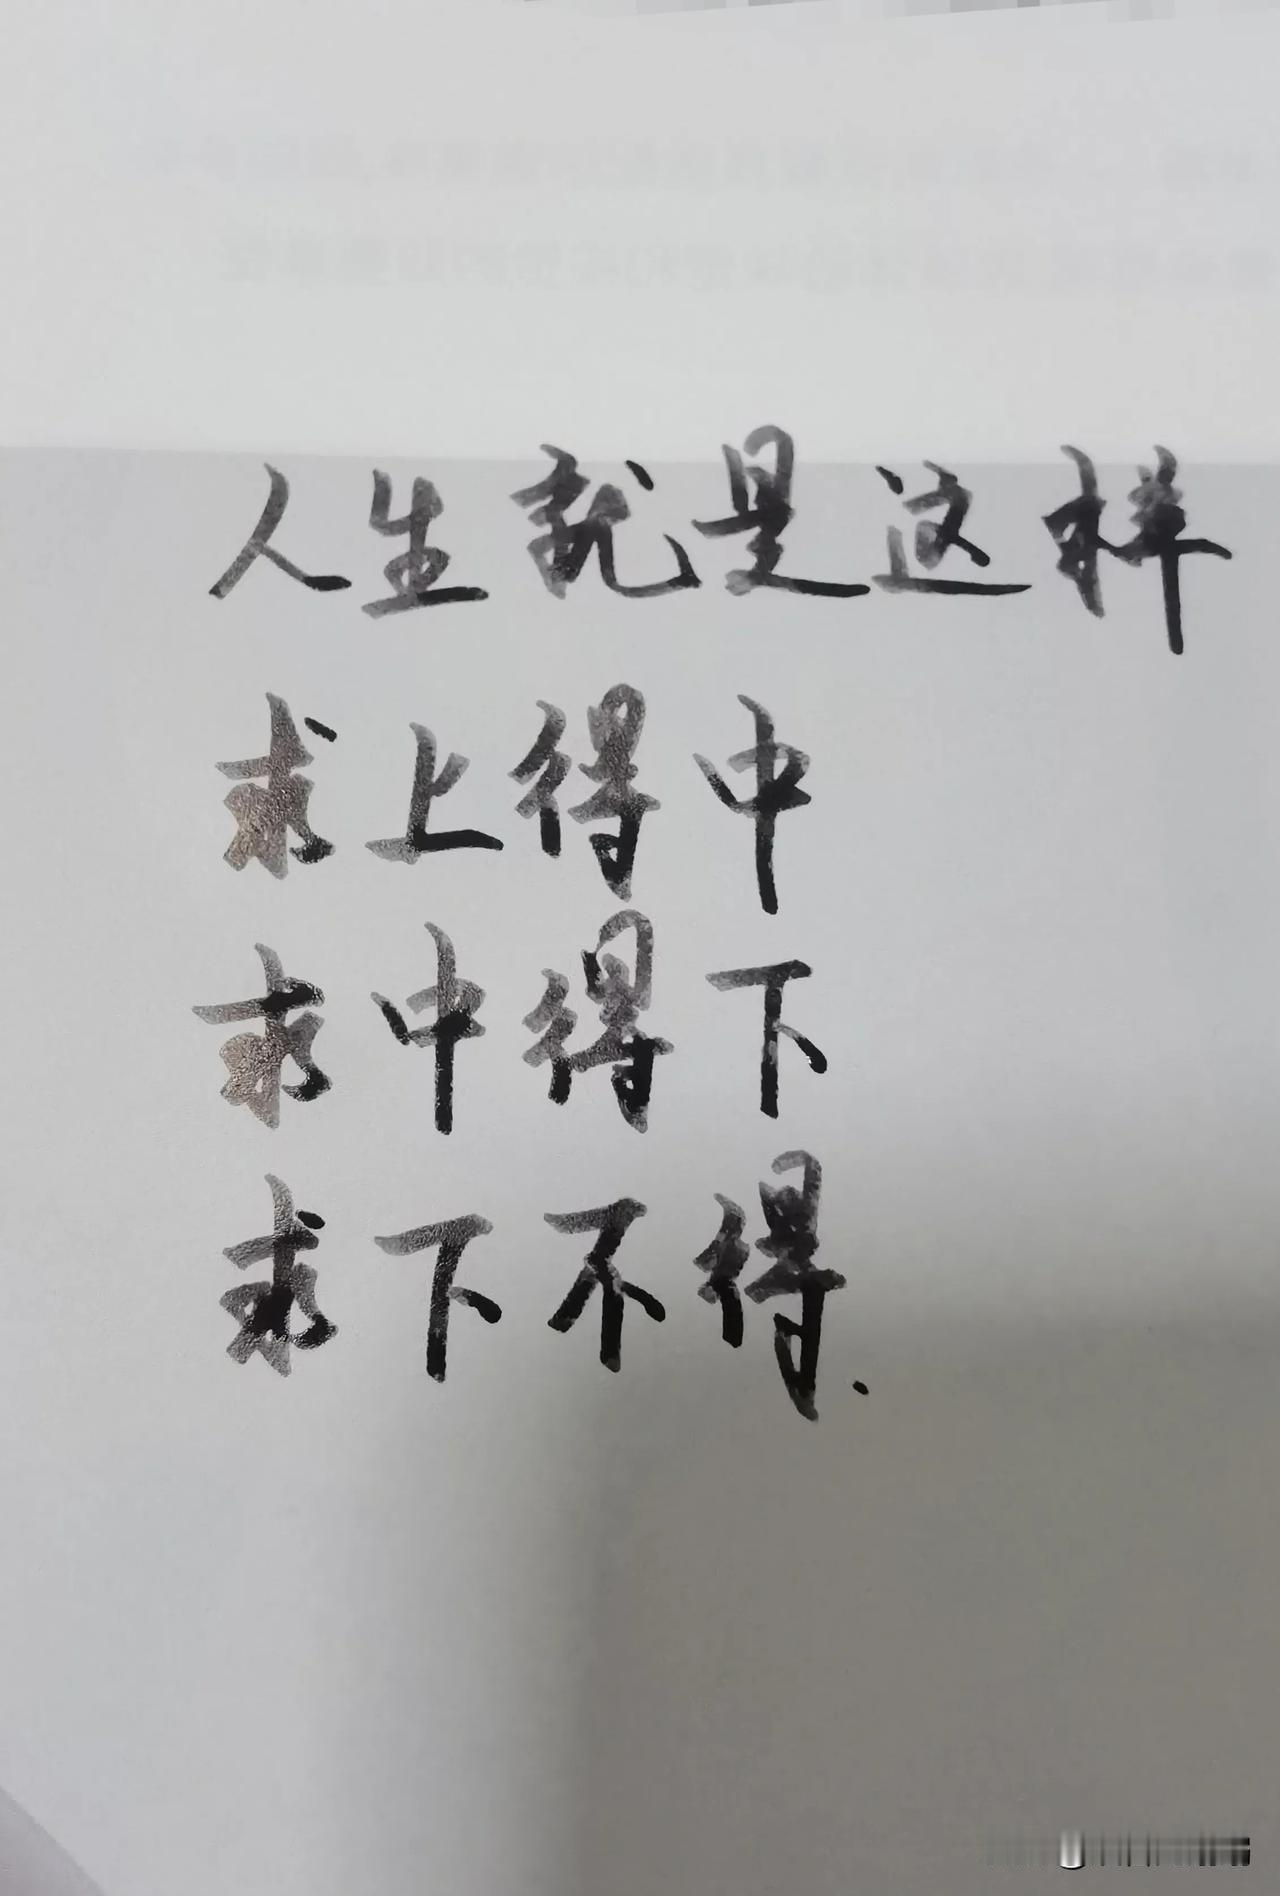 人生就是这样
求上得中
求中得下
求下不得.